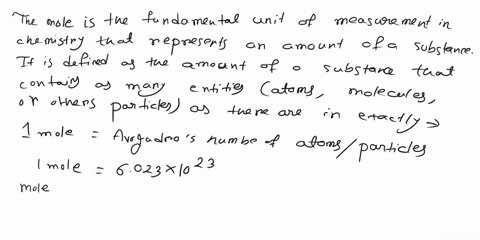 The mole is the fundamental unit of measurement in
chemistry that represents an amount of a substance.
It is defined as the amount of a substance that
contains as many entities (atoms, molecules,
or others particles) as there are in exactly →
1 mole = Avogadro's number of atoms/particles
1 mole = 6.023×10²³
mole